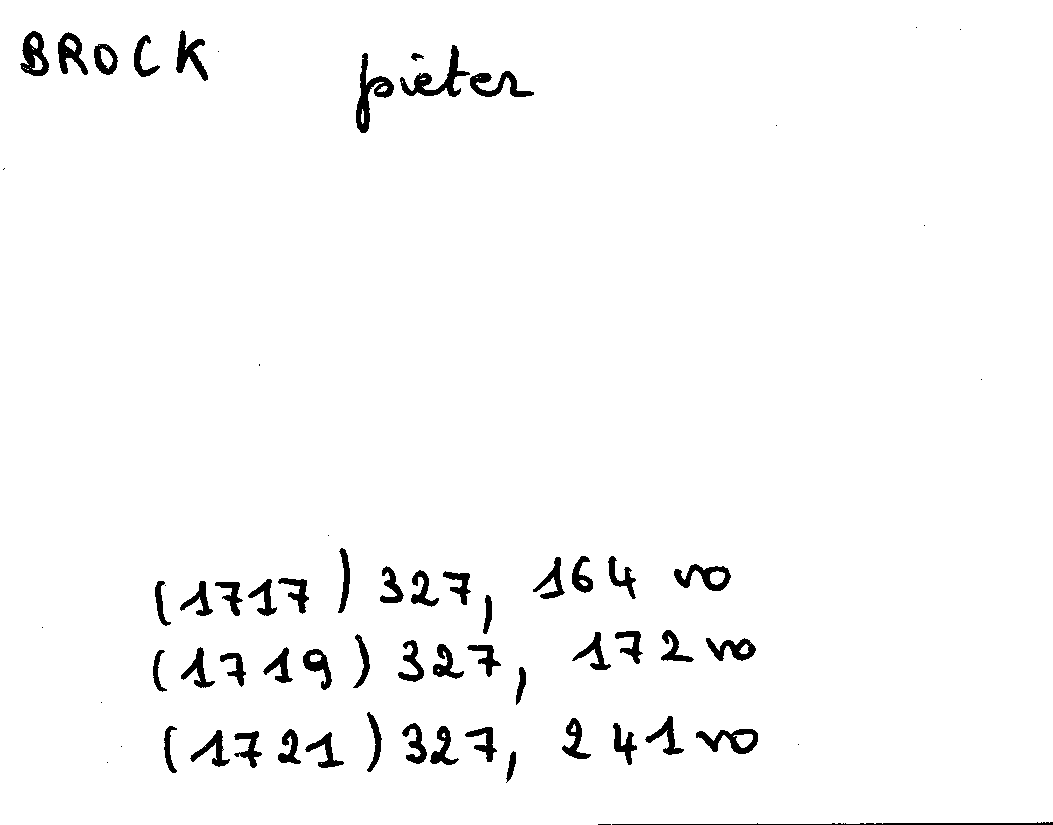 BROCK pieter
(1717) 327, 164 vo
(1719) 327, 172 vo
(1721) 327, 241 vo